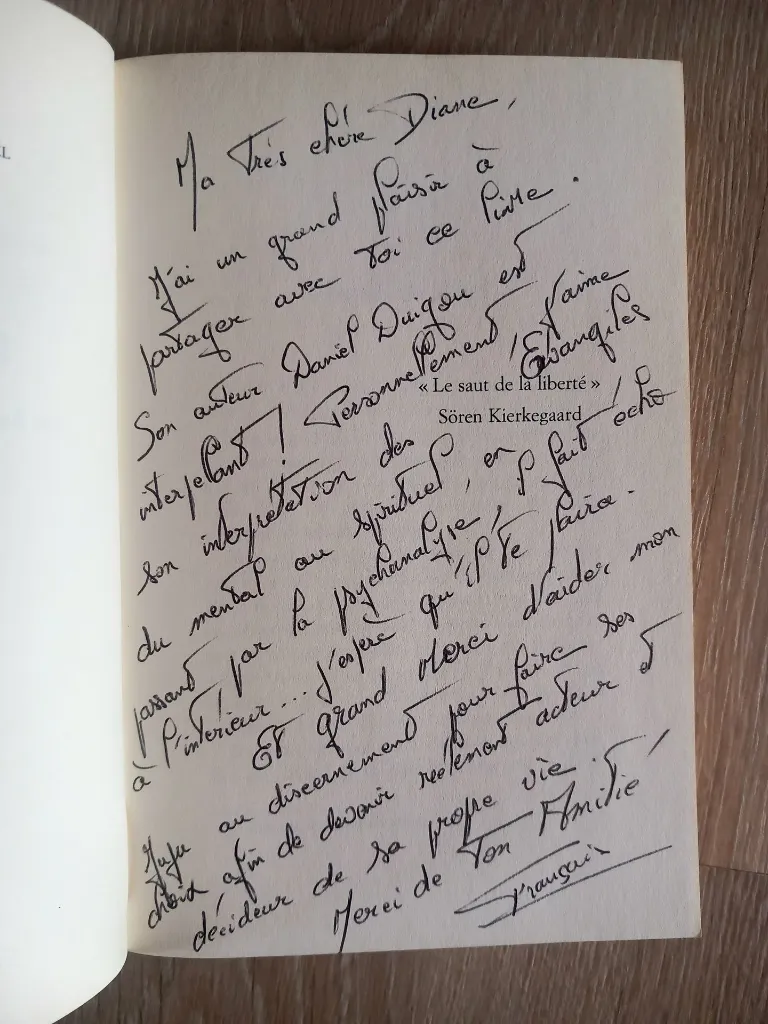 L
Ma Très chère Diane,
J'ai un grand plaisir à
partager avec toi ce livre.
Son auteur Daniel Duigou est
interpelant ! Personnellement, j'aime
« Le saut de la liberté »
Sören Kierkegaard
son interprétation des Evangiles
du mental au spirituel, en
passant par la psychanalyse, il fait écho
à l'intérieur... j'espère qu'il te plaira.
Et grand Merci d'aider mon
Juju au discernement pour faire ses
choix afin de devenir réellement acteur et
décideur de sa propre vie.
Merci de Ton Amitié